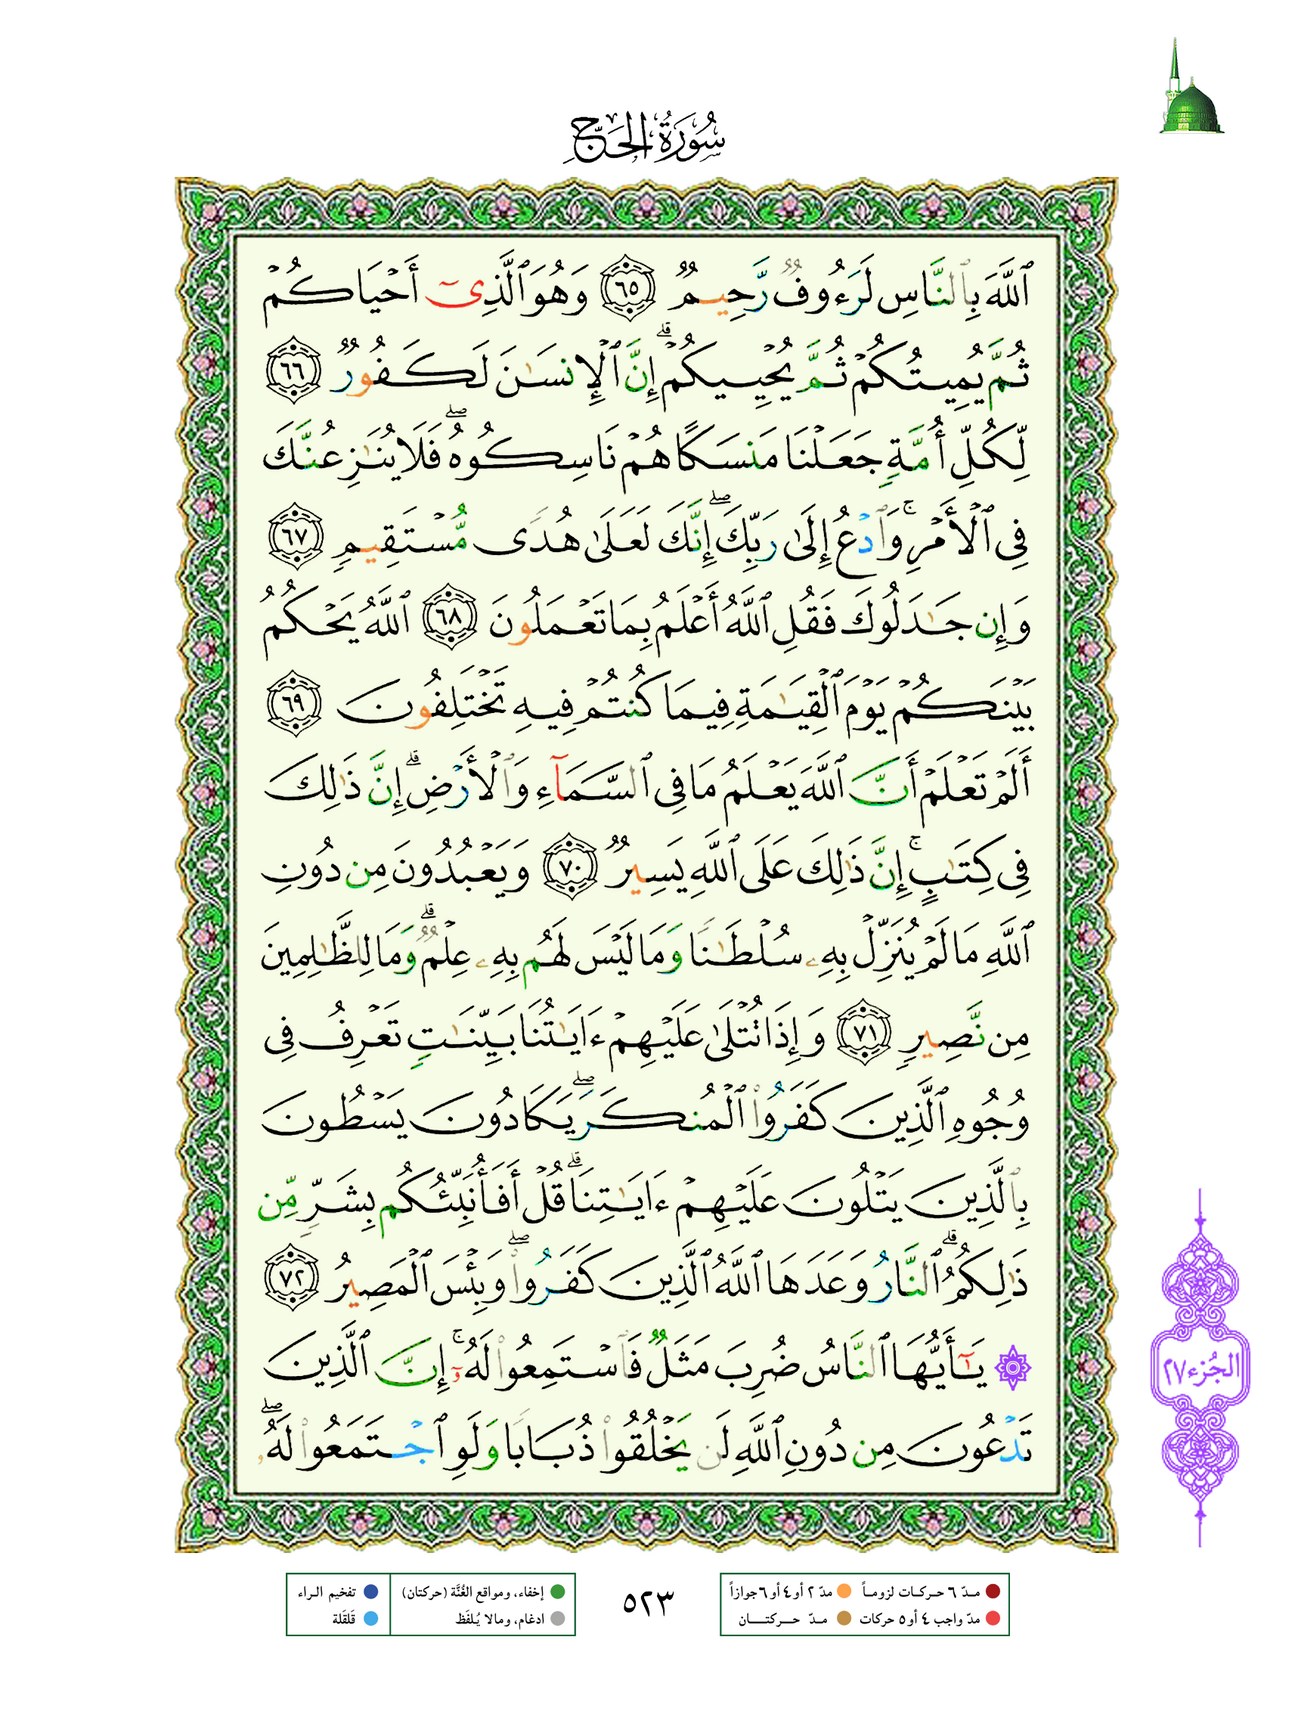 سُورَةُ الحَجِّ
ٱللَّهَ بِٱلنَّاسِ لَرَءُوفٌ رَّحِيمٌ ٦٥ وَهُوَ ٱلَّذِىٓ أَحْيَاكُمْ
ثُمَّ يُمِيتُكُمْ ثُمَّ يُحْيِيكُمْ ۗ إِنَّ ٱلْإِنسَٰنَ لَكَفُورٌ ٦٦
لِّكُلِّ أُمَّةٍ جَعَلْنَا مَنسَكًا هُمْ نَاسِكُوهُ ۖ فَلَا يُنَٰزِعُنَّكَ
فِى ٱلْأَمْرِ ۚ وَٱدْعُ إِلَىٰ رَبِّكَ ۖ إِنَّكَ لَعَلَىٰ هُدًى مُّسْتَقِيمٍ ٦٧
وَإِن جَٰدَلُوكَ فَقُلِ ٱللَّهُ أَعْلَمُ بِمَا تَعْمَلُونَ ٦٨ ٱللَّهُ يَحْكُمُ
بَيْنَكُمْ يَوْمَ ٱلْقِيَٰمَةِ فِيمَا كُنتُمْ فِيهِ تَخْتَلِفُونَ ٦٩
أَلَمْ تَعْلَمْ أَنَّ ٱللَّهَ يَعْلَمُ مَا فِى ٱلسَّمَآءِ وَٱلْأَرْضِ ۗ إِنَّ ذَٰلِكَ
فِى كِتَٰبٍ ۚ إِنَّ ذَٰلِكَ عَلَى ٱللَّهِ يَسِيرٌ ٧٠ وَيَعْبُدُونَ مِن دُونِ
ٱللَّهِ مَا لَمْ يُنَزِّلْ بِهِۦ سُلْطَٰنًا وَمَا لَيْسَ لَهُم بِهِۦ عِلْمٌ ۗ وَمَا لِلظَّٰلِمِينَ
مِن نَّصِيرٍ ٧١ وَإِذَا تُتْلَىٰ عَلَيْهِمْ ءَايَٰتُنَا بَيِّنَٰتٍ تَعْرِفُ فِى
وُجُوهِ ٱلَّذِينَ كَفَرُوا۟ ٱلْمُنكَرَ ۖ يَكَادُونَ يَسْطُونَ
بِٱلَّذِينَ يَتْلُونَ عَلَيْهِمْ ءَايَٰتِنَا ۗ قُلْ أَفَأُنَبِّئُكُم بِشَرٍّ مِّن
ذَٰلِكُمُ ۗ ٱلنَّارُ وَعَدَهَا ٱللَّهُ ٱلَّذِينَ كَفَرُوا۟ ۖ وَبِئْسَ ٱلْمَصِيرُ ٧٢
۞ يَٰٓأَيُّهَا ٱلنَّاسُ ضُرِبَ مَثَلٌ فَٱسْتَمِعُوا۟ لَهُۥٓ ۚ إِنَّ ٱلَّذِينَ
تَدْعُونَ مِن دُونِ ٱللَّهِ لَن يَخْلُقُوا۟ ذُبَابًا وَلَوِ ٱجْتَمَعُوا۟ لَهُۥ ۖ
الجُزء ٢٧
مدّ ٦ حركات لزوماً مدّ ٢ أو ٤ أو ٦ جوازاً
مدّ واجب ٤ أو ٥ حركات مدّ حركتان
٥٢٣
إخفاء، ومواقع الغُنَّة (حركتان) تفخيم الراء
ادغام، ومالا يُلفَظ قَلقَلة